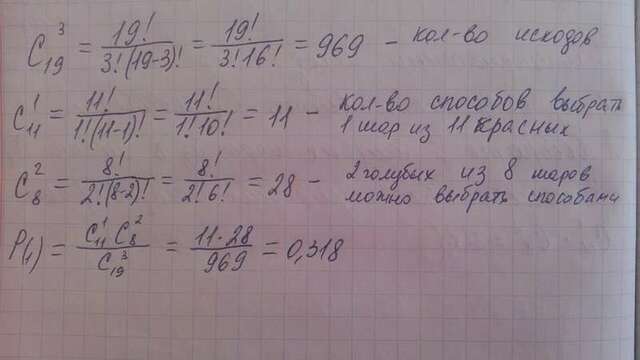 C₁₉³ = 19!/3!(19-3)! = 19!/3!16! = 969 – кол-во исходов
C₁₁¹ = 11!/1!(11-1)! = 11!/1!10! = 11 – кол-во способов выбрать
1 шар из 11 красных
C₈² = 8!/2!(8-2)! = 8!/2!6! = 28 – 2 голубых из 8 шаров
можно выбрать способами
P(1) = C₁₁¹ C₈²/C₁₉³ = 11·28/969 = 0,318